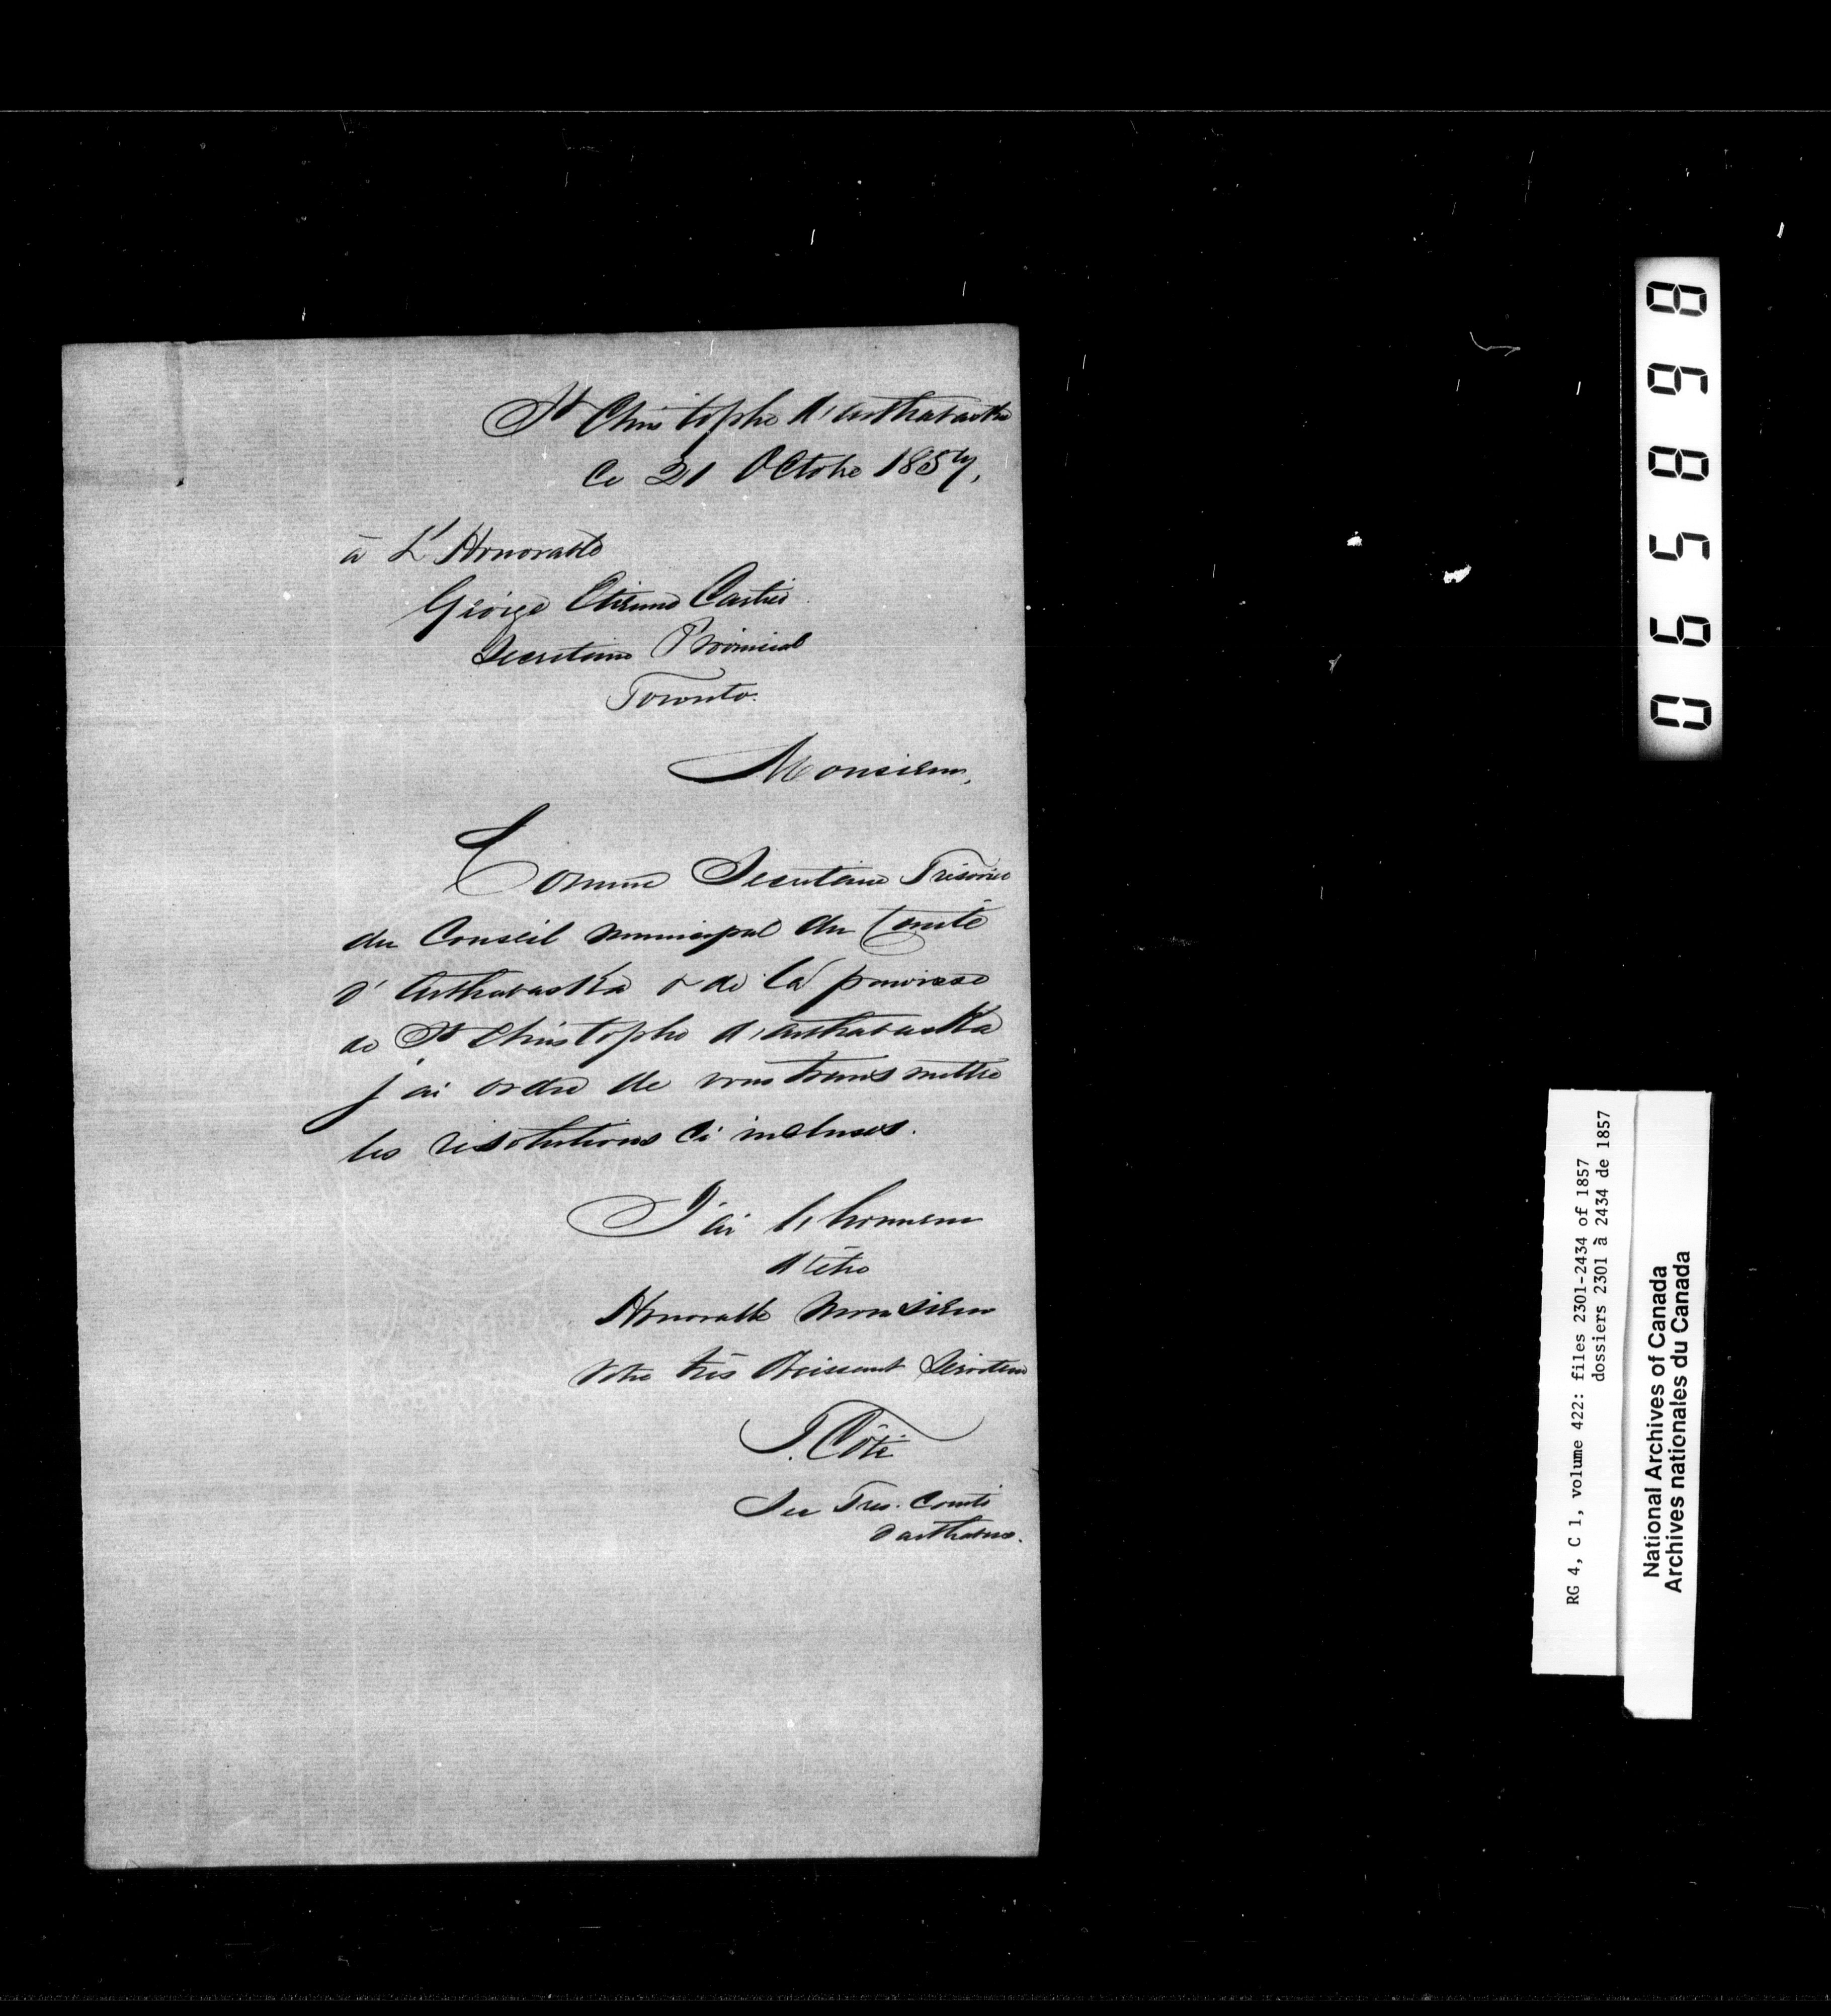 St Christophe d'Arthabaska
Ce 21 Octobre 1857,
à L'Honorable
George Etienne Cartier
Secretaire Provincial
Toronto.
Monsieur,
Comme Secretaire Trésorier
du Conseil Municipal du Comté
d'Arthabaska & de la paroisse
de St Christophe d'Arthabaska
j'ai ordre de vous transmettre
les résolutions ci incluses.
J'ai l'honneur
d'être
Honorable Monsieur
Votre très Obeissant Serviteur
J. Côté
Sec Tres. Comté
d'Arthabas.
065898
RG 4, C 1, volume 422: files 2301-2434 of 1857
dossiers 2301 à 2434 de 1857
National Archives of Canada
Archives nationales du Canada